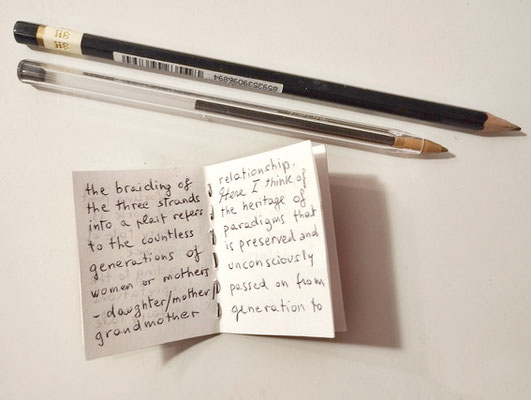 the braiding of
the three strands
into a plait refers
to the countless
generations of
women or mothers
- daughter/mother/
grandmother
relationship.
Here I think of
the heritage of
paradigms that
is preserved and
unconsciously
passed on from
generation to